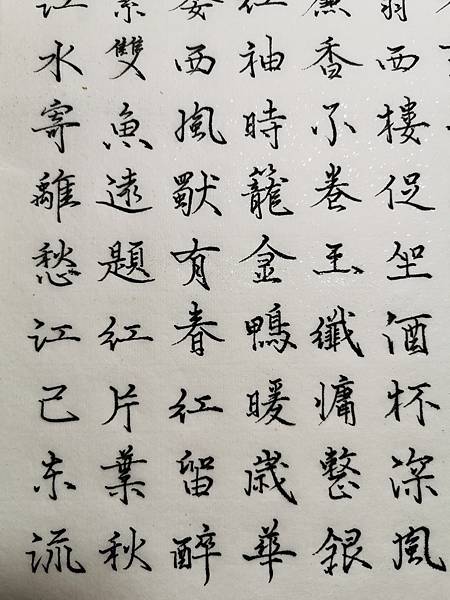 西樓促坐酒杯深風
簾香不卷玉纖慵整銀
紅袖時籠金鴨暖歲華
委西風獸有春紅留醉
素雙魚遠題紅片葉秋
江水寄離愁江已東流